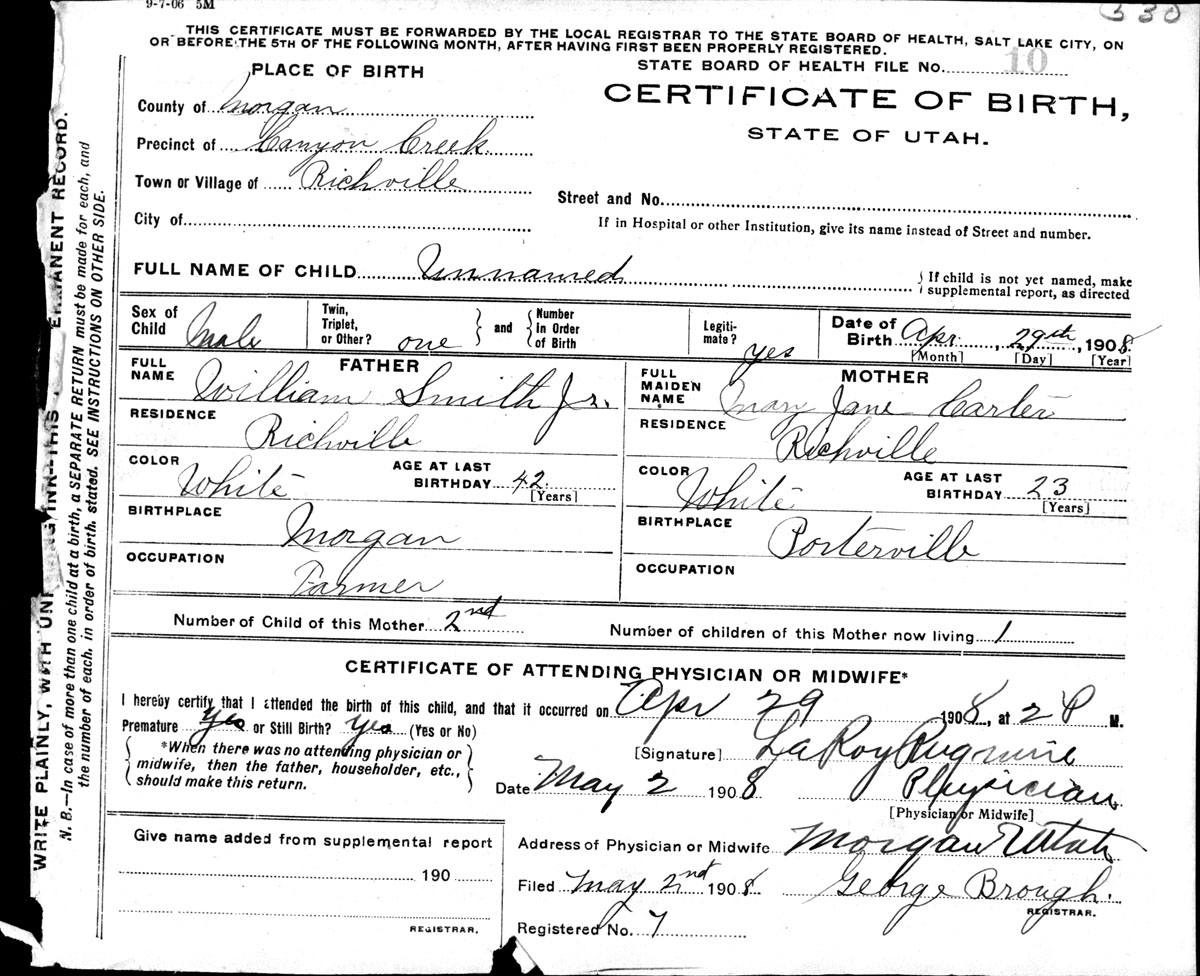 9-7-06 5M
330
THIS CERTIFICATE MUST BE FORWARDED BY THE LOCAL REGISTRAR TO THE STATE BOARD OF HEALTH, SALT LAKE CITY, ON
OR BEFORE THE 5TH OF THE FOLLOWING MONTH, AFTER HAVING FIRST BEEN PROPERLY REGISTERED.
STATE BOARD OF HEALTH FILE No. 10
PLACE OF BIRTH
CERTIFICATE OF BIRTH,
STATE OF UTAH.
County of Morgan
Precinct of Canyon Creek
Town or Village of Richville
Street and No.
City of
If in Hospital or other Institution, give its name instead of Street and number.
FULL NAME OF CHILD Unnamed
If child is not yet named, make
supplemental report, as directed
Sex of Child Male
Twin, Triplet, or Other? one
and
Number In Order of Birth
Legiti-mate? yes
Date of Birth Apr. 29th, 1908
[Month] [Day] [Year]
FATHER
FULL NAME William Smith Jr.
RESIDENCE Richville
COLOR White
AGE AT LAST BIRTHDAY 42
[Years]
BIRTHPLACE Morgan
OCCUPATION Farmer
MOTHER
FULL MAIDEN NAME Mary Jane Carter
RESIDENCE Richville
COLOR White
AGE AT LAST BIRTHDAY 23
[Years]
BIRTHPLACE Porterville
OCCUPATION
Number of Child of this Mother 2nd
Number of children of this Mother now living 1
CERTIFICATE OF ATTENDING PHYSICIAN OR MIDWIFE*
I hereby certify that I attended the birth of this child, and that it occurred on Apr 29 1908, at 2 P M.
Premature yes or Still Birth? yes (Yes or No)
*When there was no attending physician or
midwife, then the father, householder, etc.,
should make this return.
[Signature] LaRoy
Date May 2 1908
Physician
[Physician or Midwife]
Give name added from supplemental report
190
REGISTRAR.
Address of Physician or Midwife Morgan Utah
Filed May 2nd 1908 George Brough.
REGISTRAR.
Registered No. 7
WRITE PLAINLY, WITH INK—THIS PERMANENT RECORD.
N. B.—In case of more than one child at a birth, a SEPARATE RETURN must be made for each, and
the number of each, in order of birth, stated. SEE INSTRUCTIONS ON OTHER SIDE.